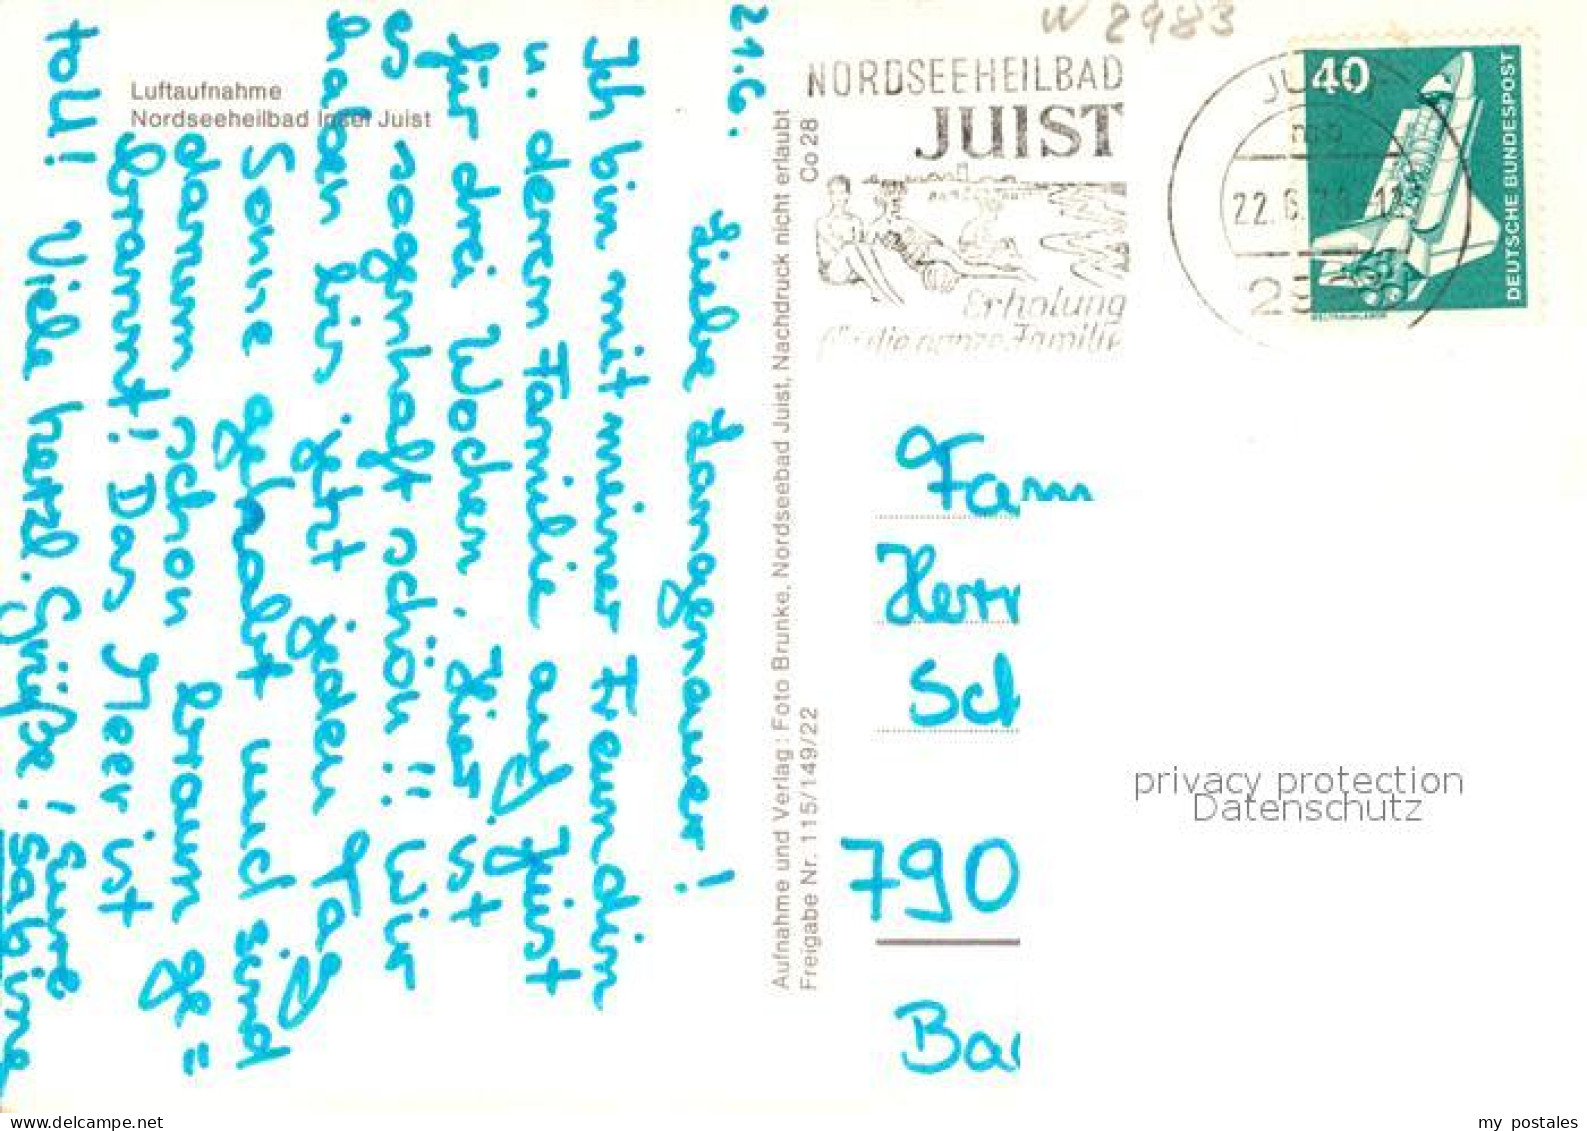 W 2983
Luftaufnahme
Nordseeheilbad Insel Juist
21.6.
Liebe Langenauer!
Ich bin mit meiner Freundin
u. deren Familie auf Juist
für drei Wochen. Hier ist
es sagenhaft schön!! Wir
haben bis jetzt jeden Tag
Sonne gehabt und sind
darum schon braun ge=
brannt! Das Meer ist
toll!
Viele herzl. Grüße! Eure
Sabine
Aufnahme und Verlag: Foto Brunke, Nordseebad Juist, Nachdruck nicht erlaubt
Freigabe Nr. 115/149/22
Co 28
NORDSEEHEILBAD
JUIST
Erholung
für die ganze Familie
JUIST
22.6.7
40
DEUTSCHE BUNDESPOST
WELTRAUMLABOR
Fam
Herr
Sch
790
Ba
privacy protection
Datenschutz
my postales